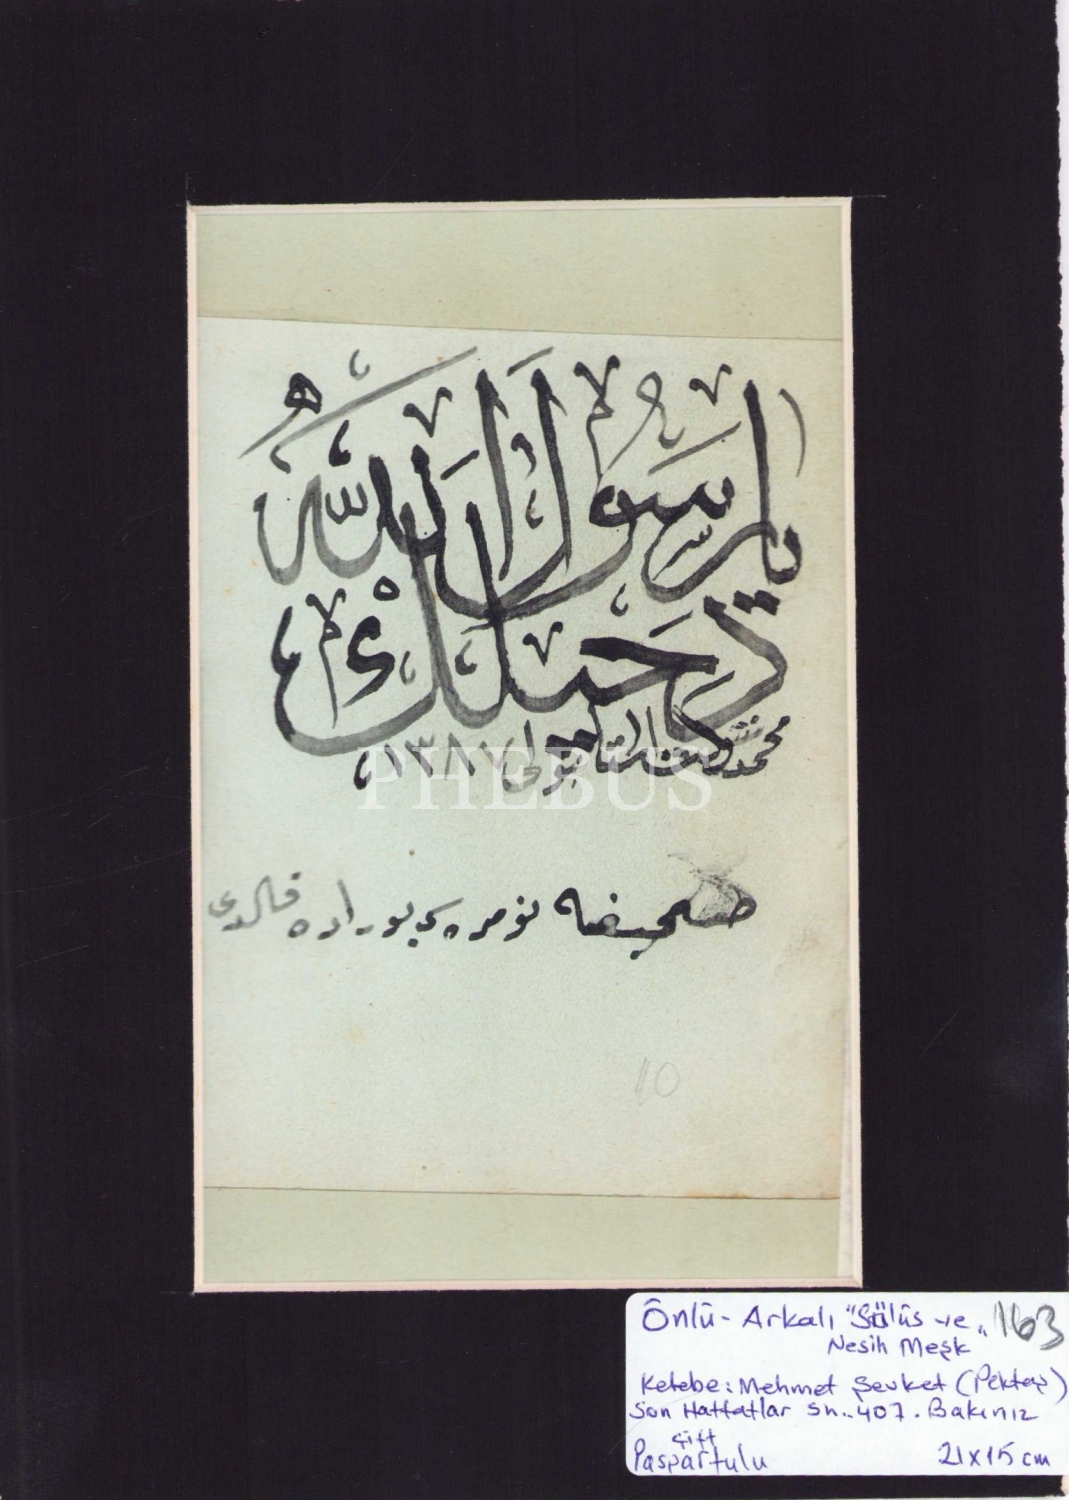 يا رسول الله
دخيلك
محمد شوكت استانبولى ١٣٨٧
PHEBUS
صحيفه نومروسى بوراده قالدى
10
Önlü - Arkalı "Sülüs ve Nesih Meşk"
163
Ketebe: Mehmet Şevket (Pektaş)
Son Hattatlar Sh. 407. Bakınız
Çift
Paspartulu 21x15 cm